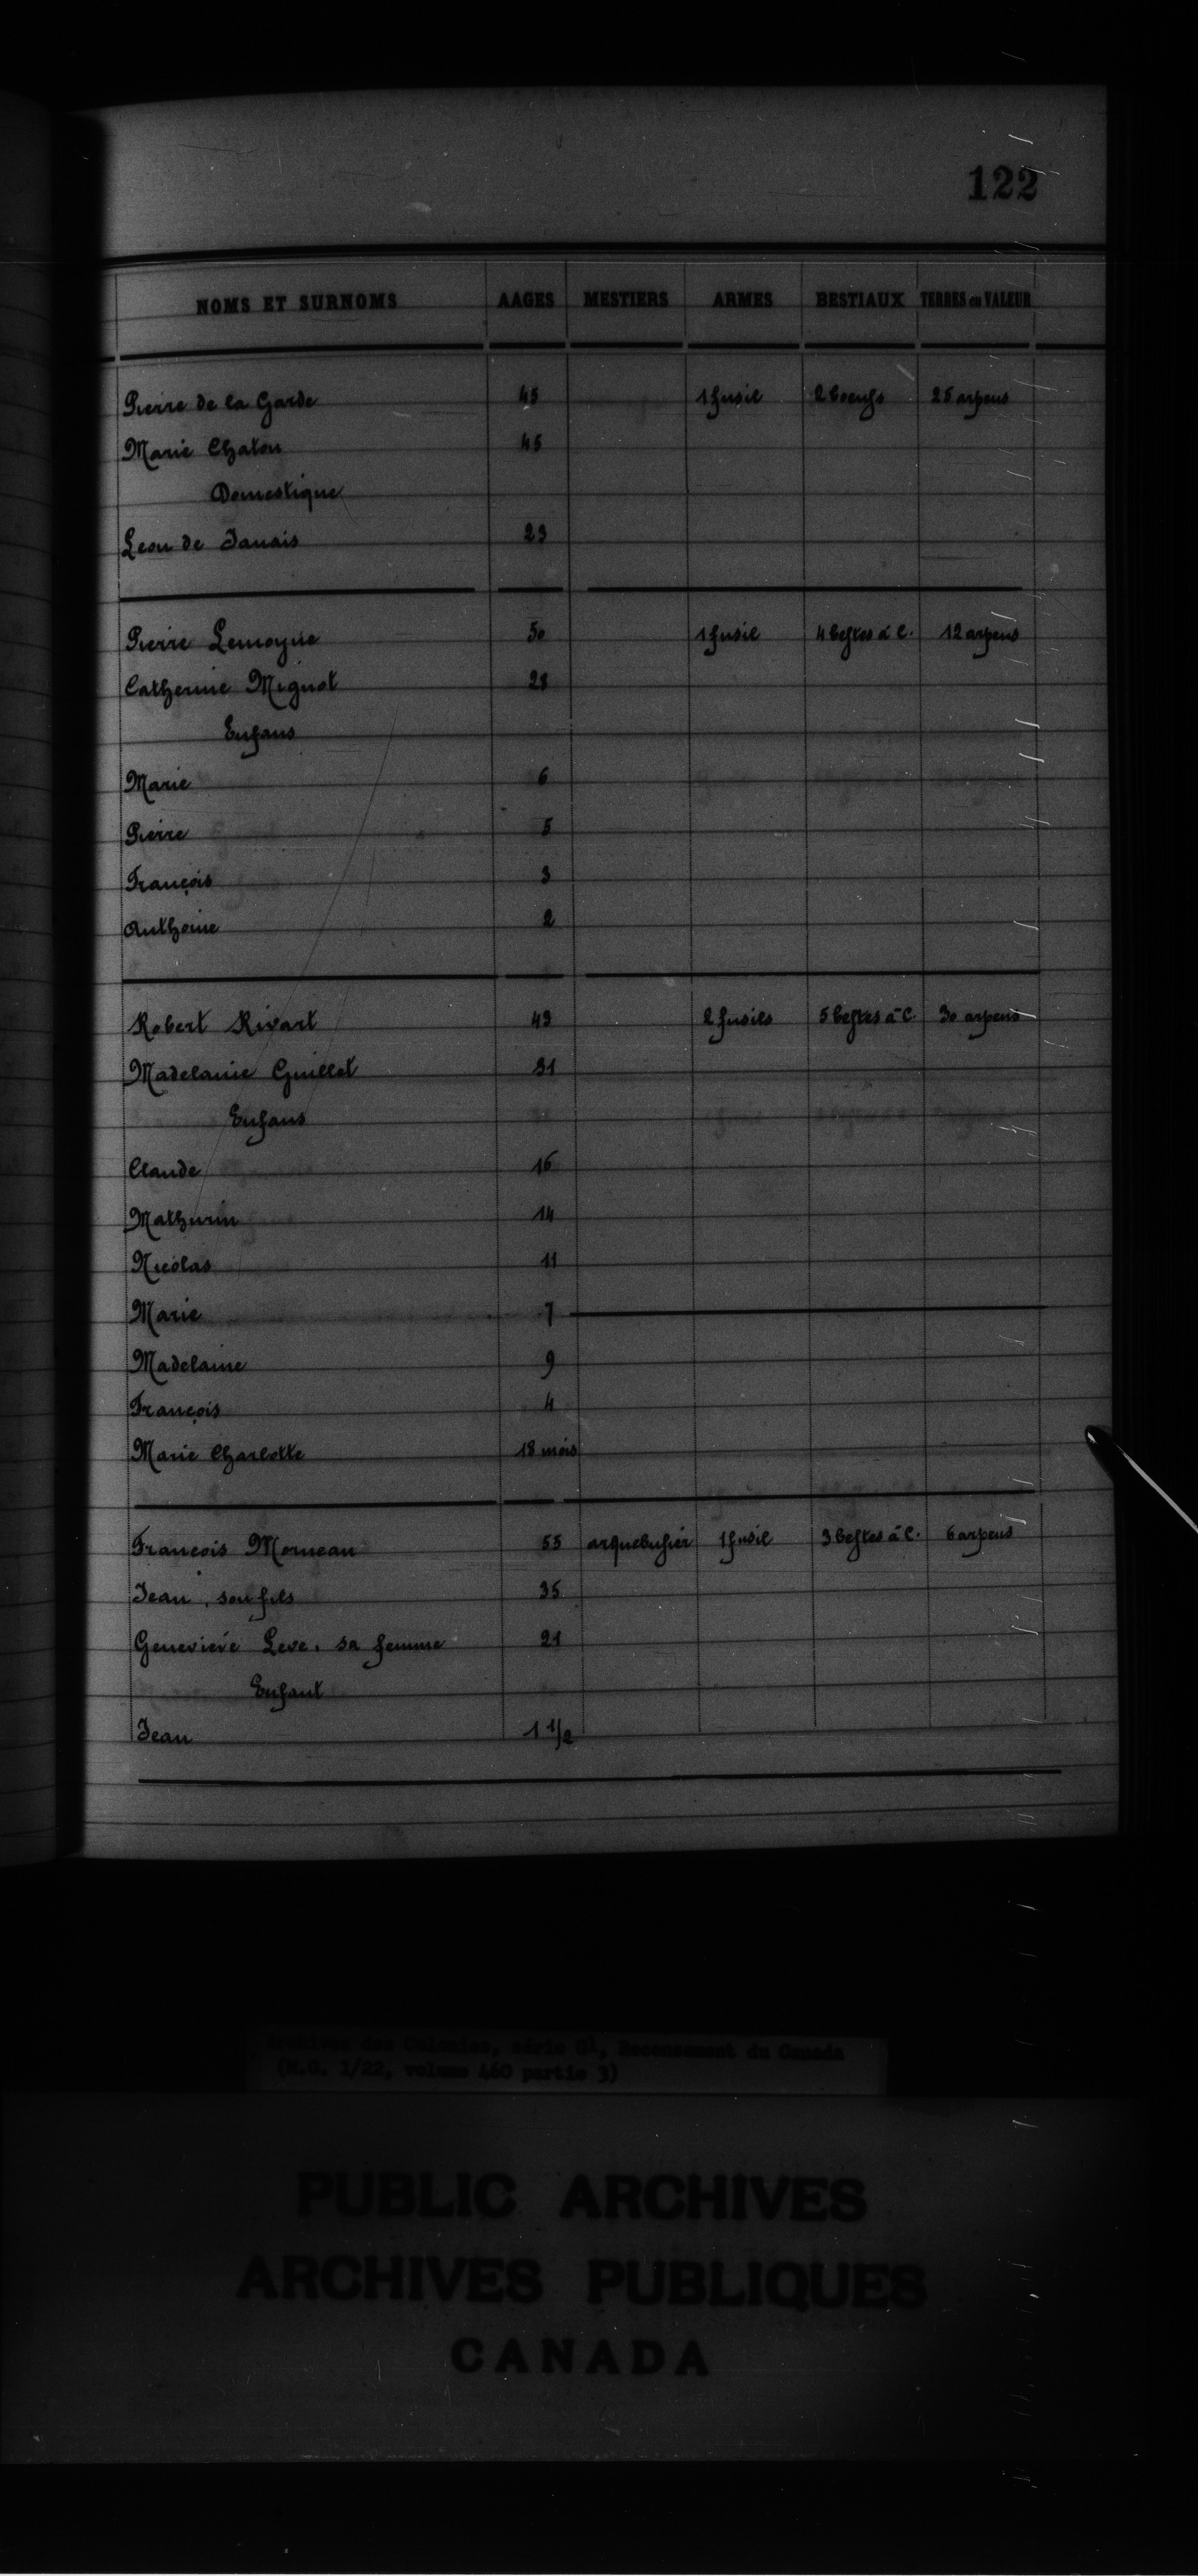 122
NOMS ET SURNOMS AAGES MESTIERS ARMES BESTIAUX TERRES en VALEUR
Pierre de la Garde 45 1 fusil 2 boeufs 25 arpens
Marie Chaton 45
Domestique
Leon de Janais 23
Pierre Lemoyne 50 1 fusil 4 bestes à C. 12 arpens
Catherine Mignot 28
Enfans
Marie 6
Pierre 5
François 3
Anthoine 2
Robert Rivart 43 2 fusils 5 bestes à C. 30 arpens
Madelaine Guillet 31
Enfans
Claude 16
Mathurin 14
Nicolas 11
Marie 7
Madelaine 9
François 4
Marie Charlotte 18 mois
Francois Morneau 55 arquebusier 1 fusil 3 bestes à C. 6 arpens
Jean, son fils 35
Genevieve Leve, sa femme 21
Enfant
Jean 1 1/2
Archives des Colonies, série G1, Recensement du Canada
(M.G. 1/22, volume 460 partie 3)
PUBLIC ARCHIVES
ARCHIVES PUBLIQUES
CANADA